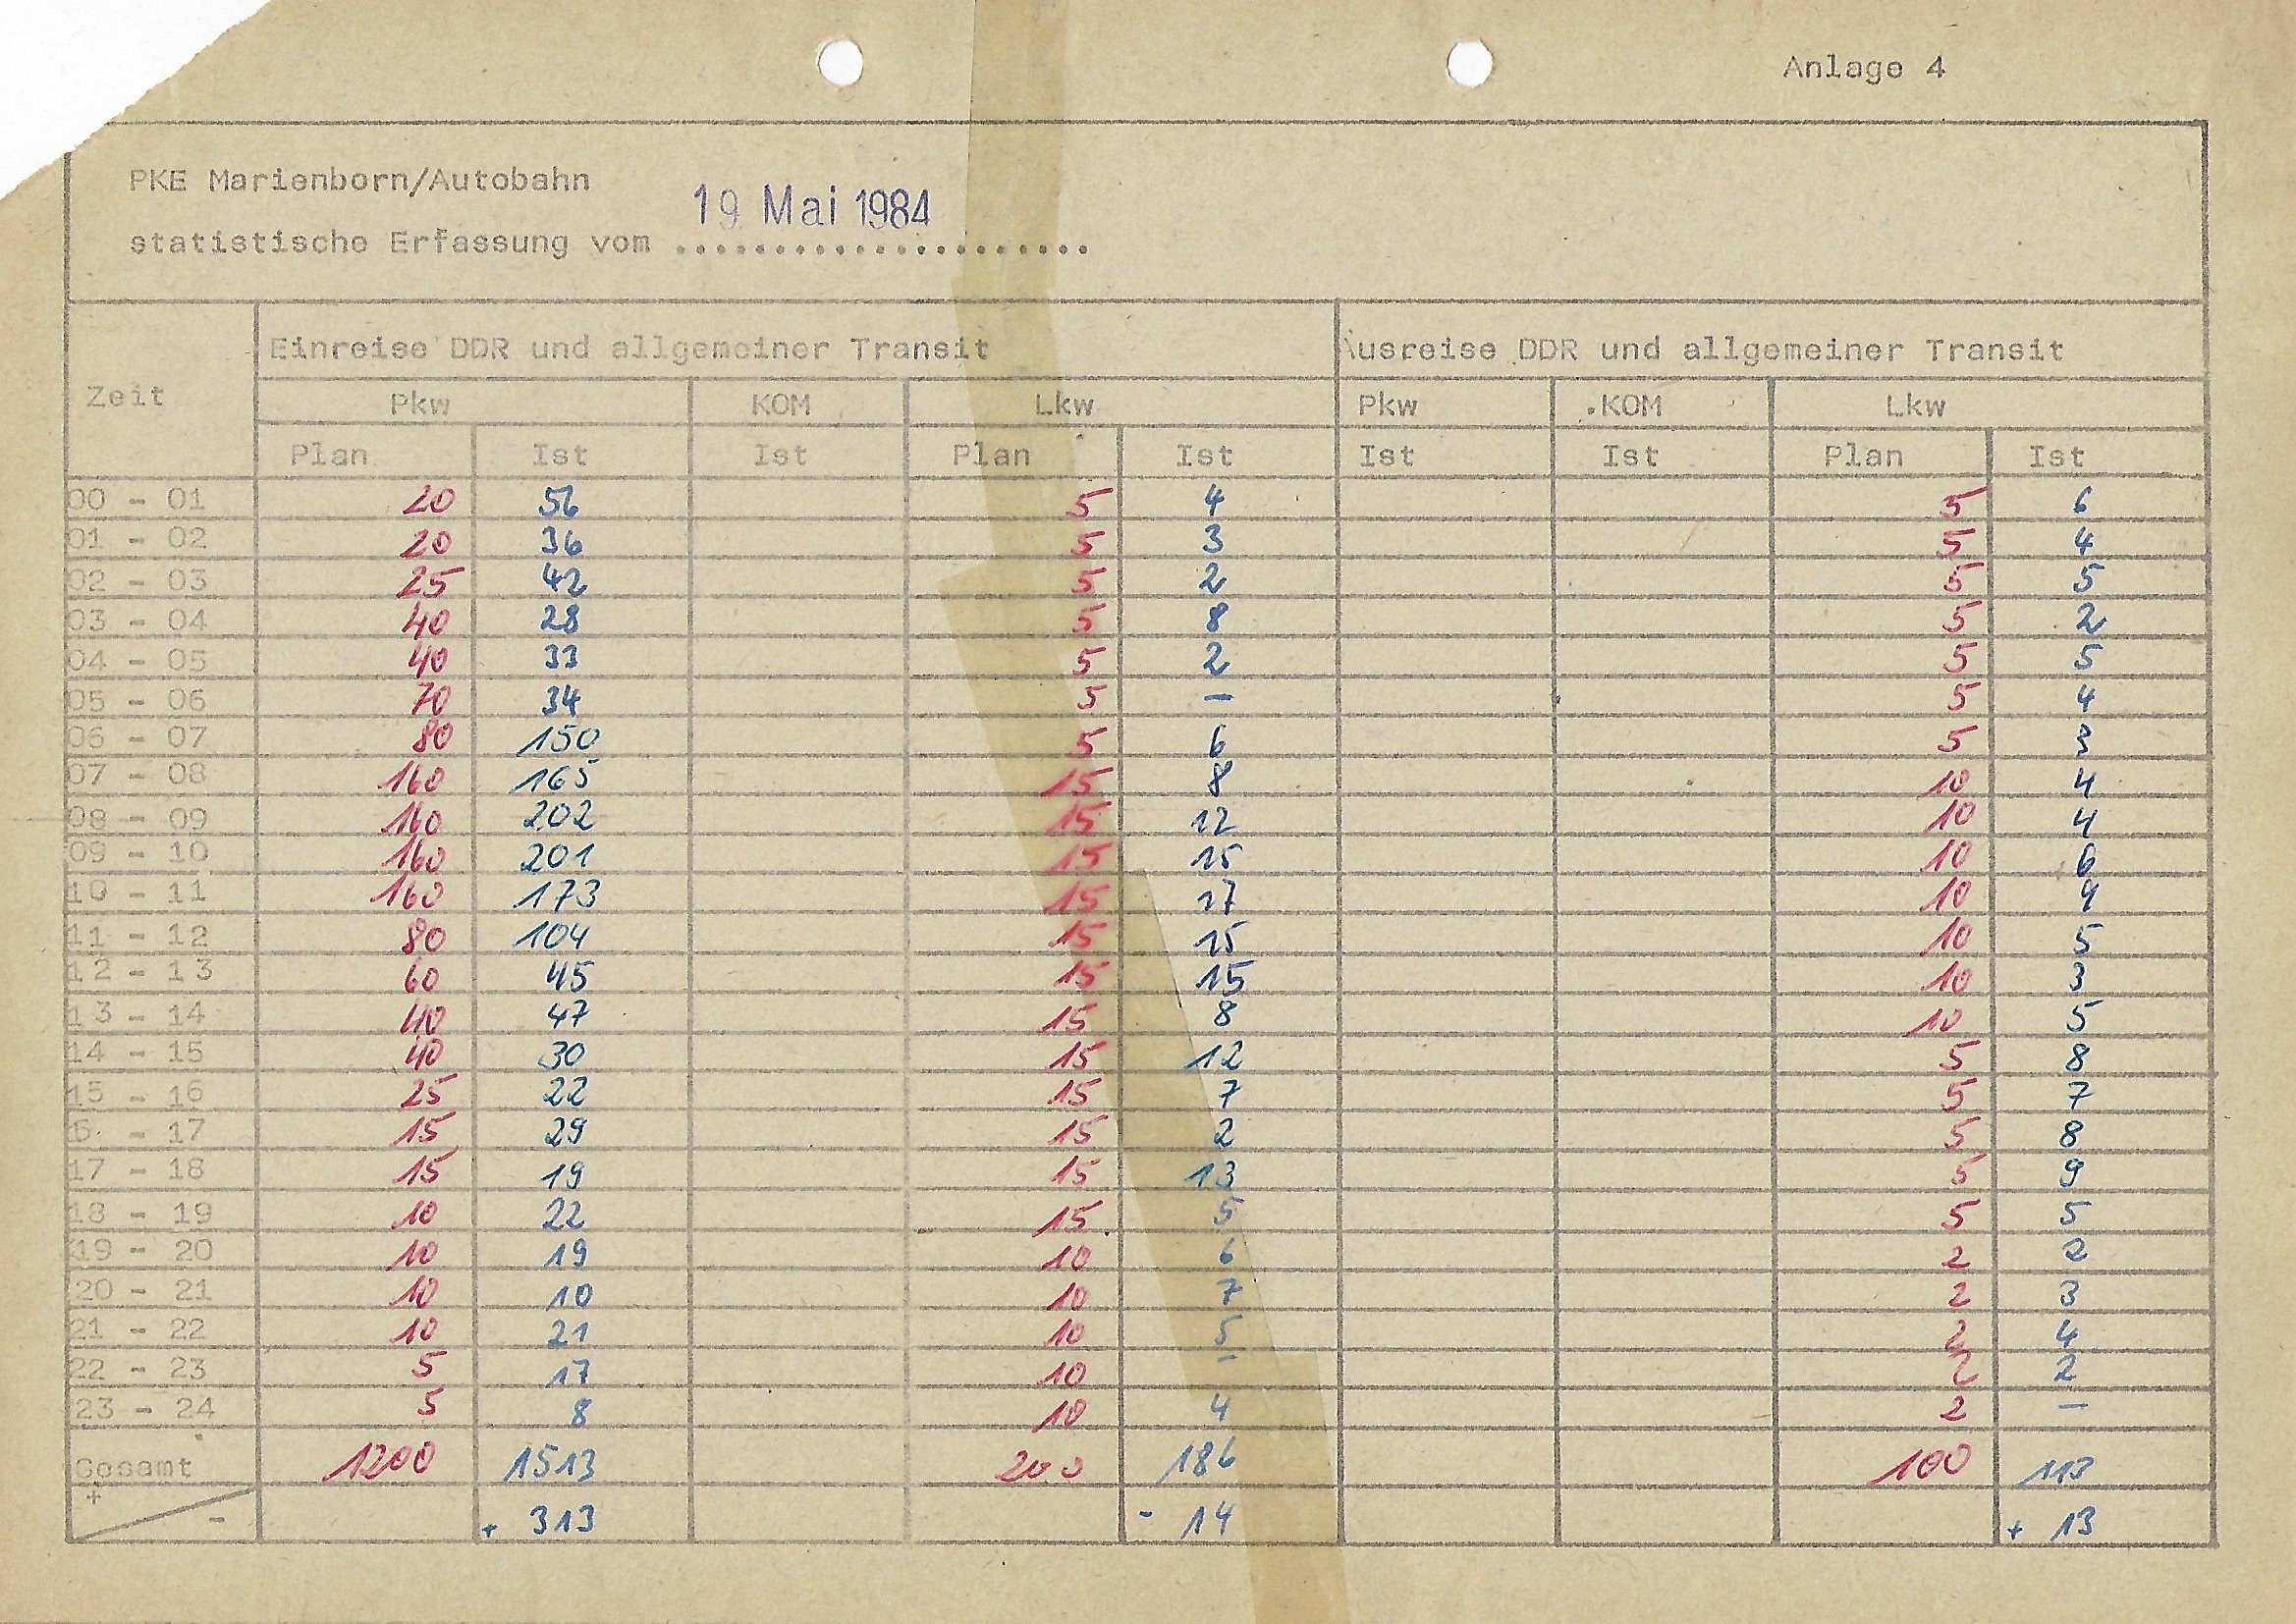 Anlage 4
PKE Marienborn/Autobahn
19 Mai 1984
statistische Erfassung vom .....................
Zeit Einreise DDR und allgemeiner Transit Ausreise DDR und allgemeiner Transit
Pkw KOM Lkw Pkw .KOM Lkw
Plan Ist Ist Plan Ist Ist Ist Plan Ist
00 - 01 20 56 5 4 5 6
01 - 02 20 36 5 3 5 4
02 - 03 25 42 5 2 5 5
03 - 04 40 28 5 8 5 2
04 - 05 40 33 5 2 5 5
05 - 06 70 34 5 – 5 4
06 - 07 80 150 5 6 5 3
07 - 08 160 165 15 8 10 4
08 - 09 160 202 15 12 10 4
09 - 10 160 201 15 15 10 6
10 - 11 160 173 15 17 10 9
11 - 12 80 104 15 15 10 5
12 - 13 60 45 15 15 10 3
13 - 14 40 47 15 8 10 5
14 - 15 40 30 15 12 5 8
15 - 16 25 22 15 7 5 7
6 - 17 15 29 15 2 5 8
17 - 18 15 19 15 13 5 9
18 - 19 10 22 15 5 5 5
19 - 20 10 19 10 6 2 2
20 - 21 10 10 10 7 2 3
21 - 22 10 21 10 5 2 4
22 - 23 5 17 10 – 2 2
23 - 24 5 8 10 4 2 –
Gesamt 1200 1513 200 186 100 113
+ - + 313 - 14 + 13